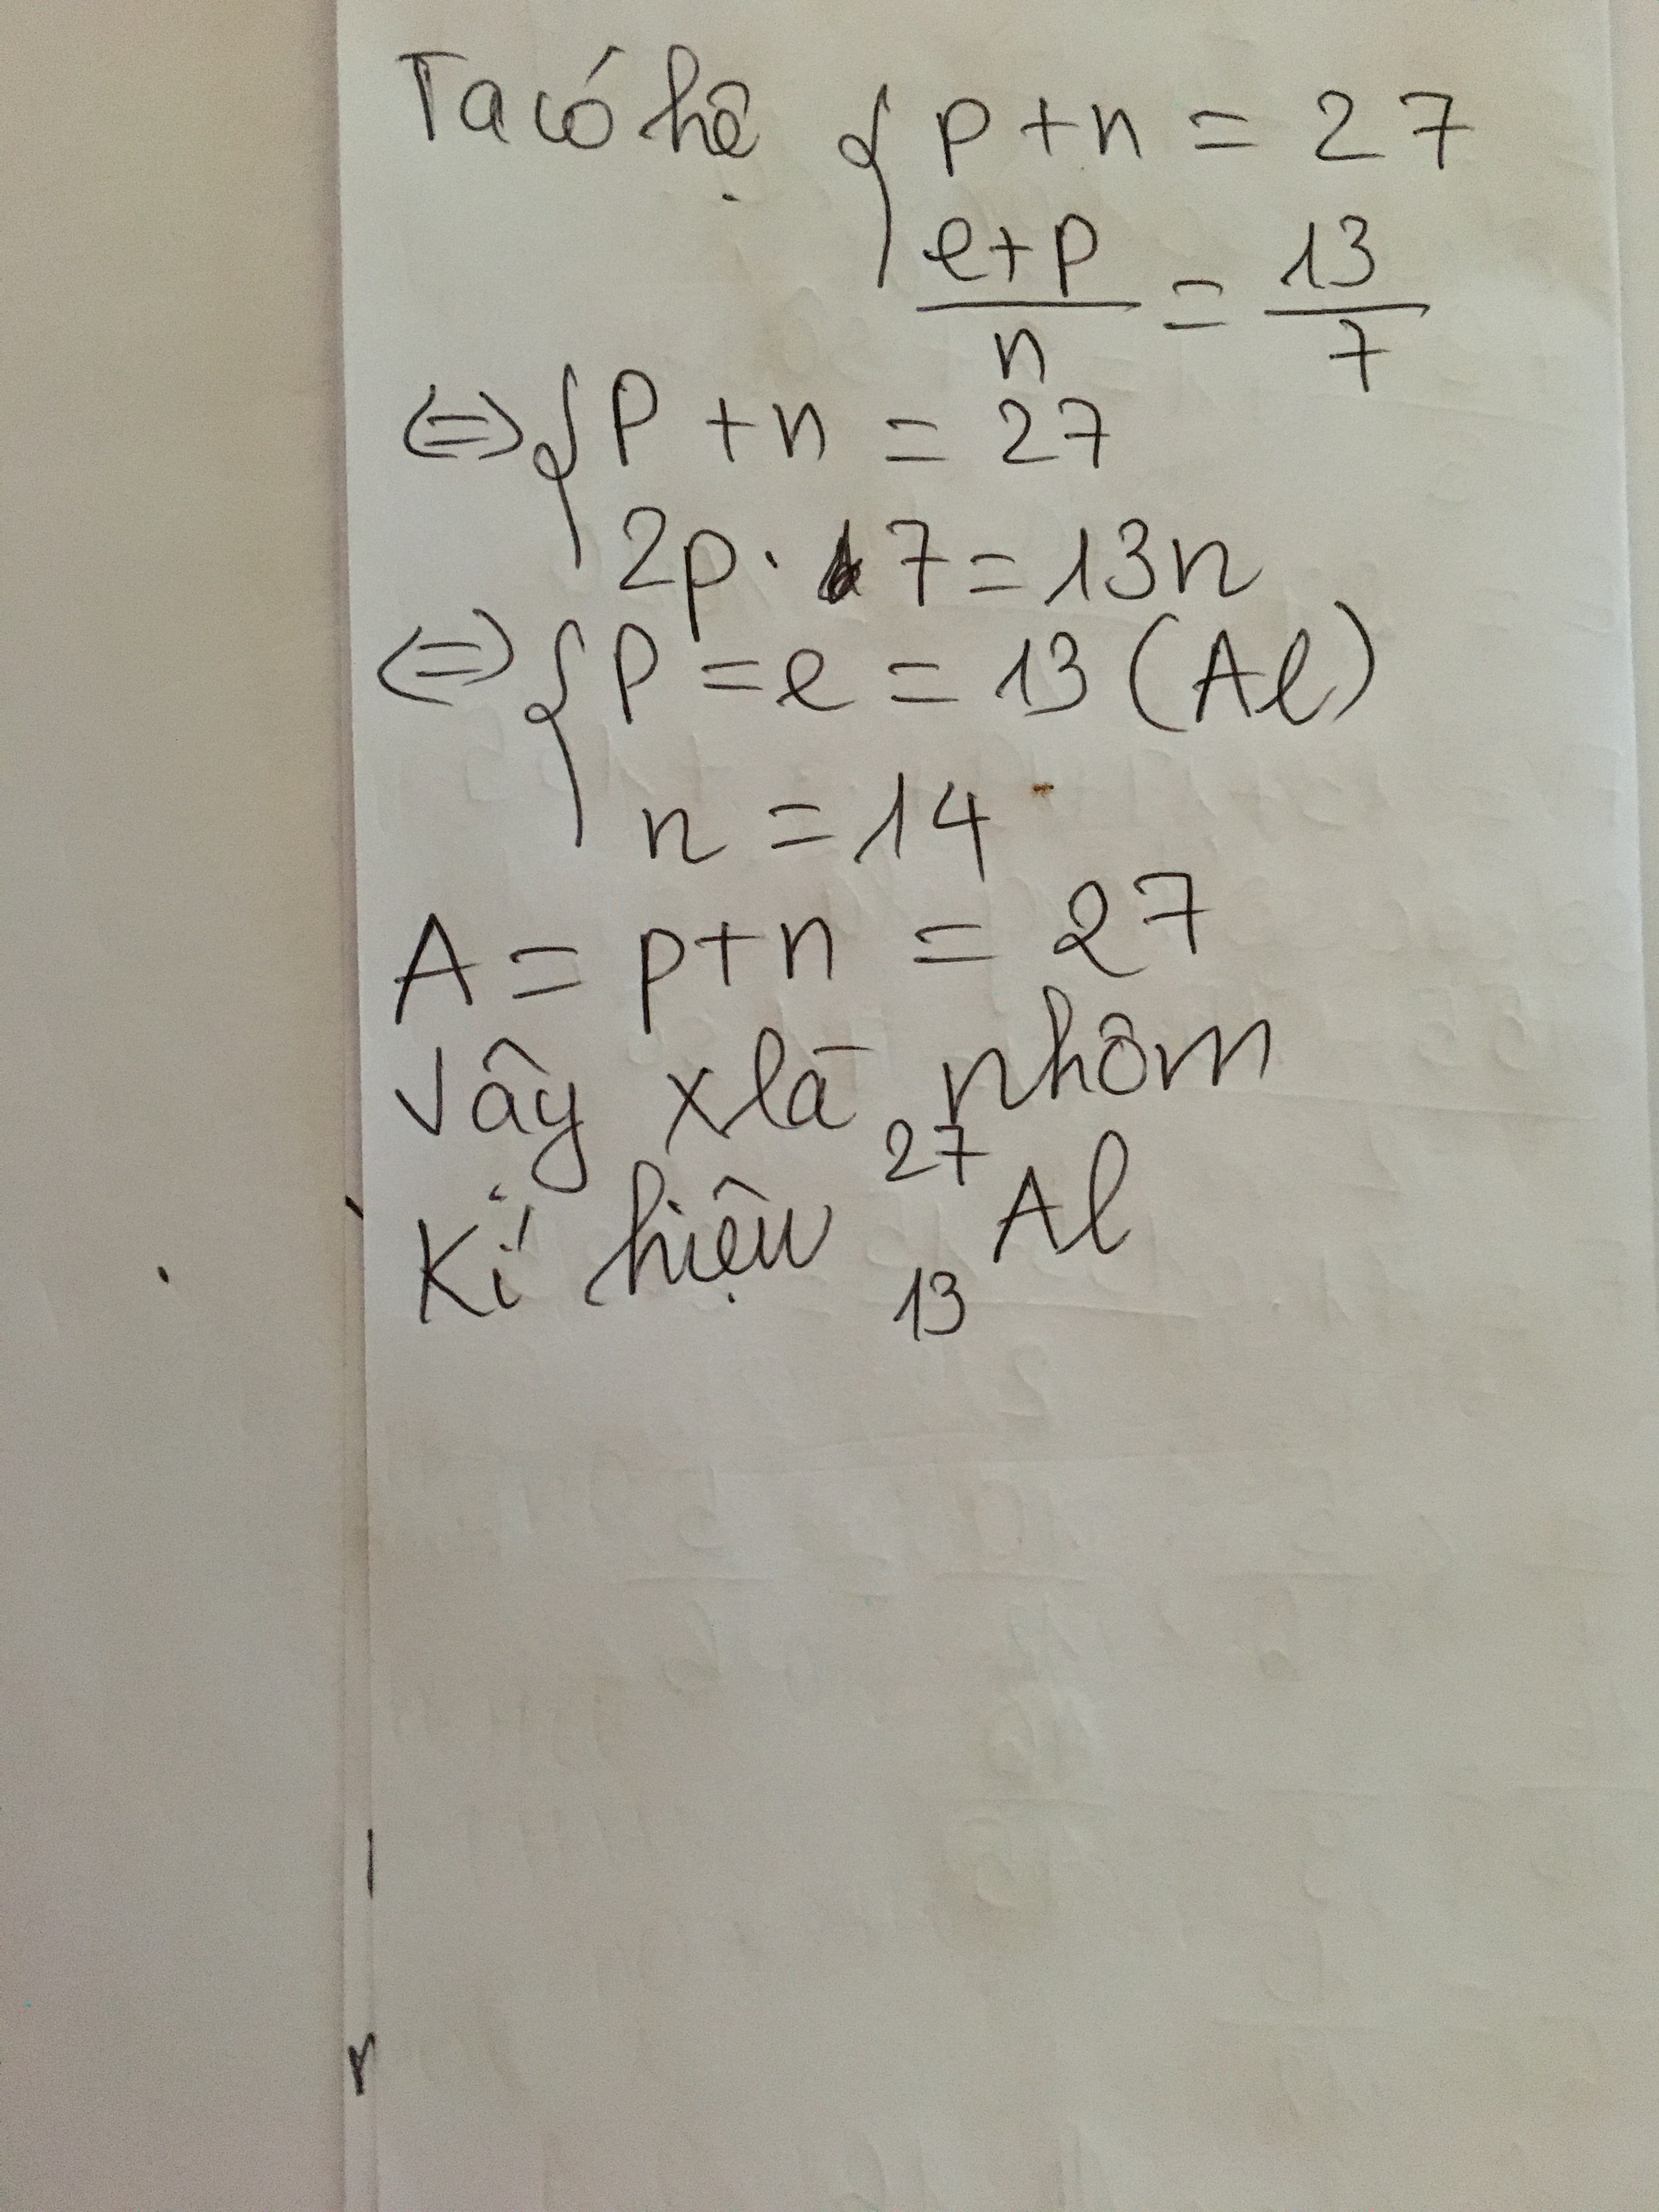 Ta có hệ { p + n = 27
e+p / n = 13 / 7
<=> { P + n = 27
2p . 7 = 13n
<=> { P = e = 13 (Al)
n = 14
A = p+n = 27
Vây x là nhôm
Kí hiệu 27 13 Al